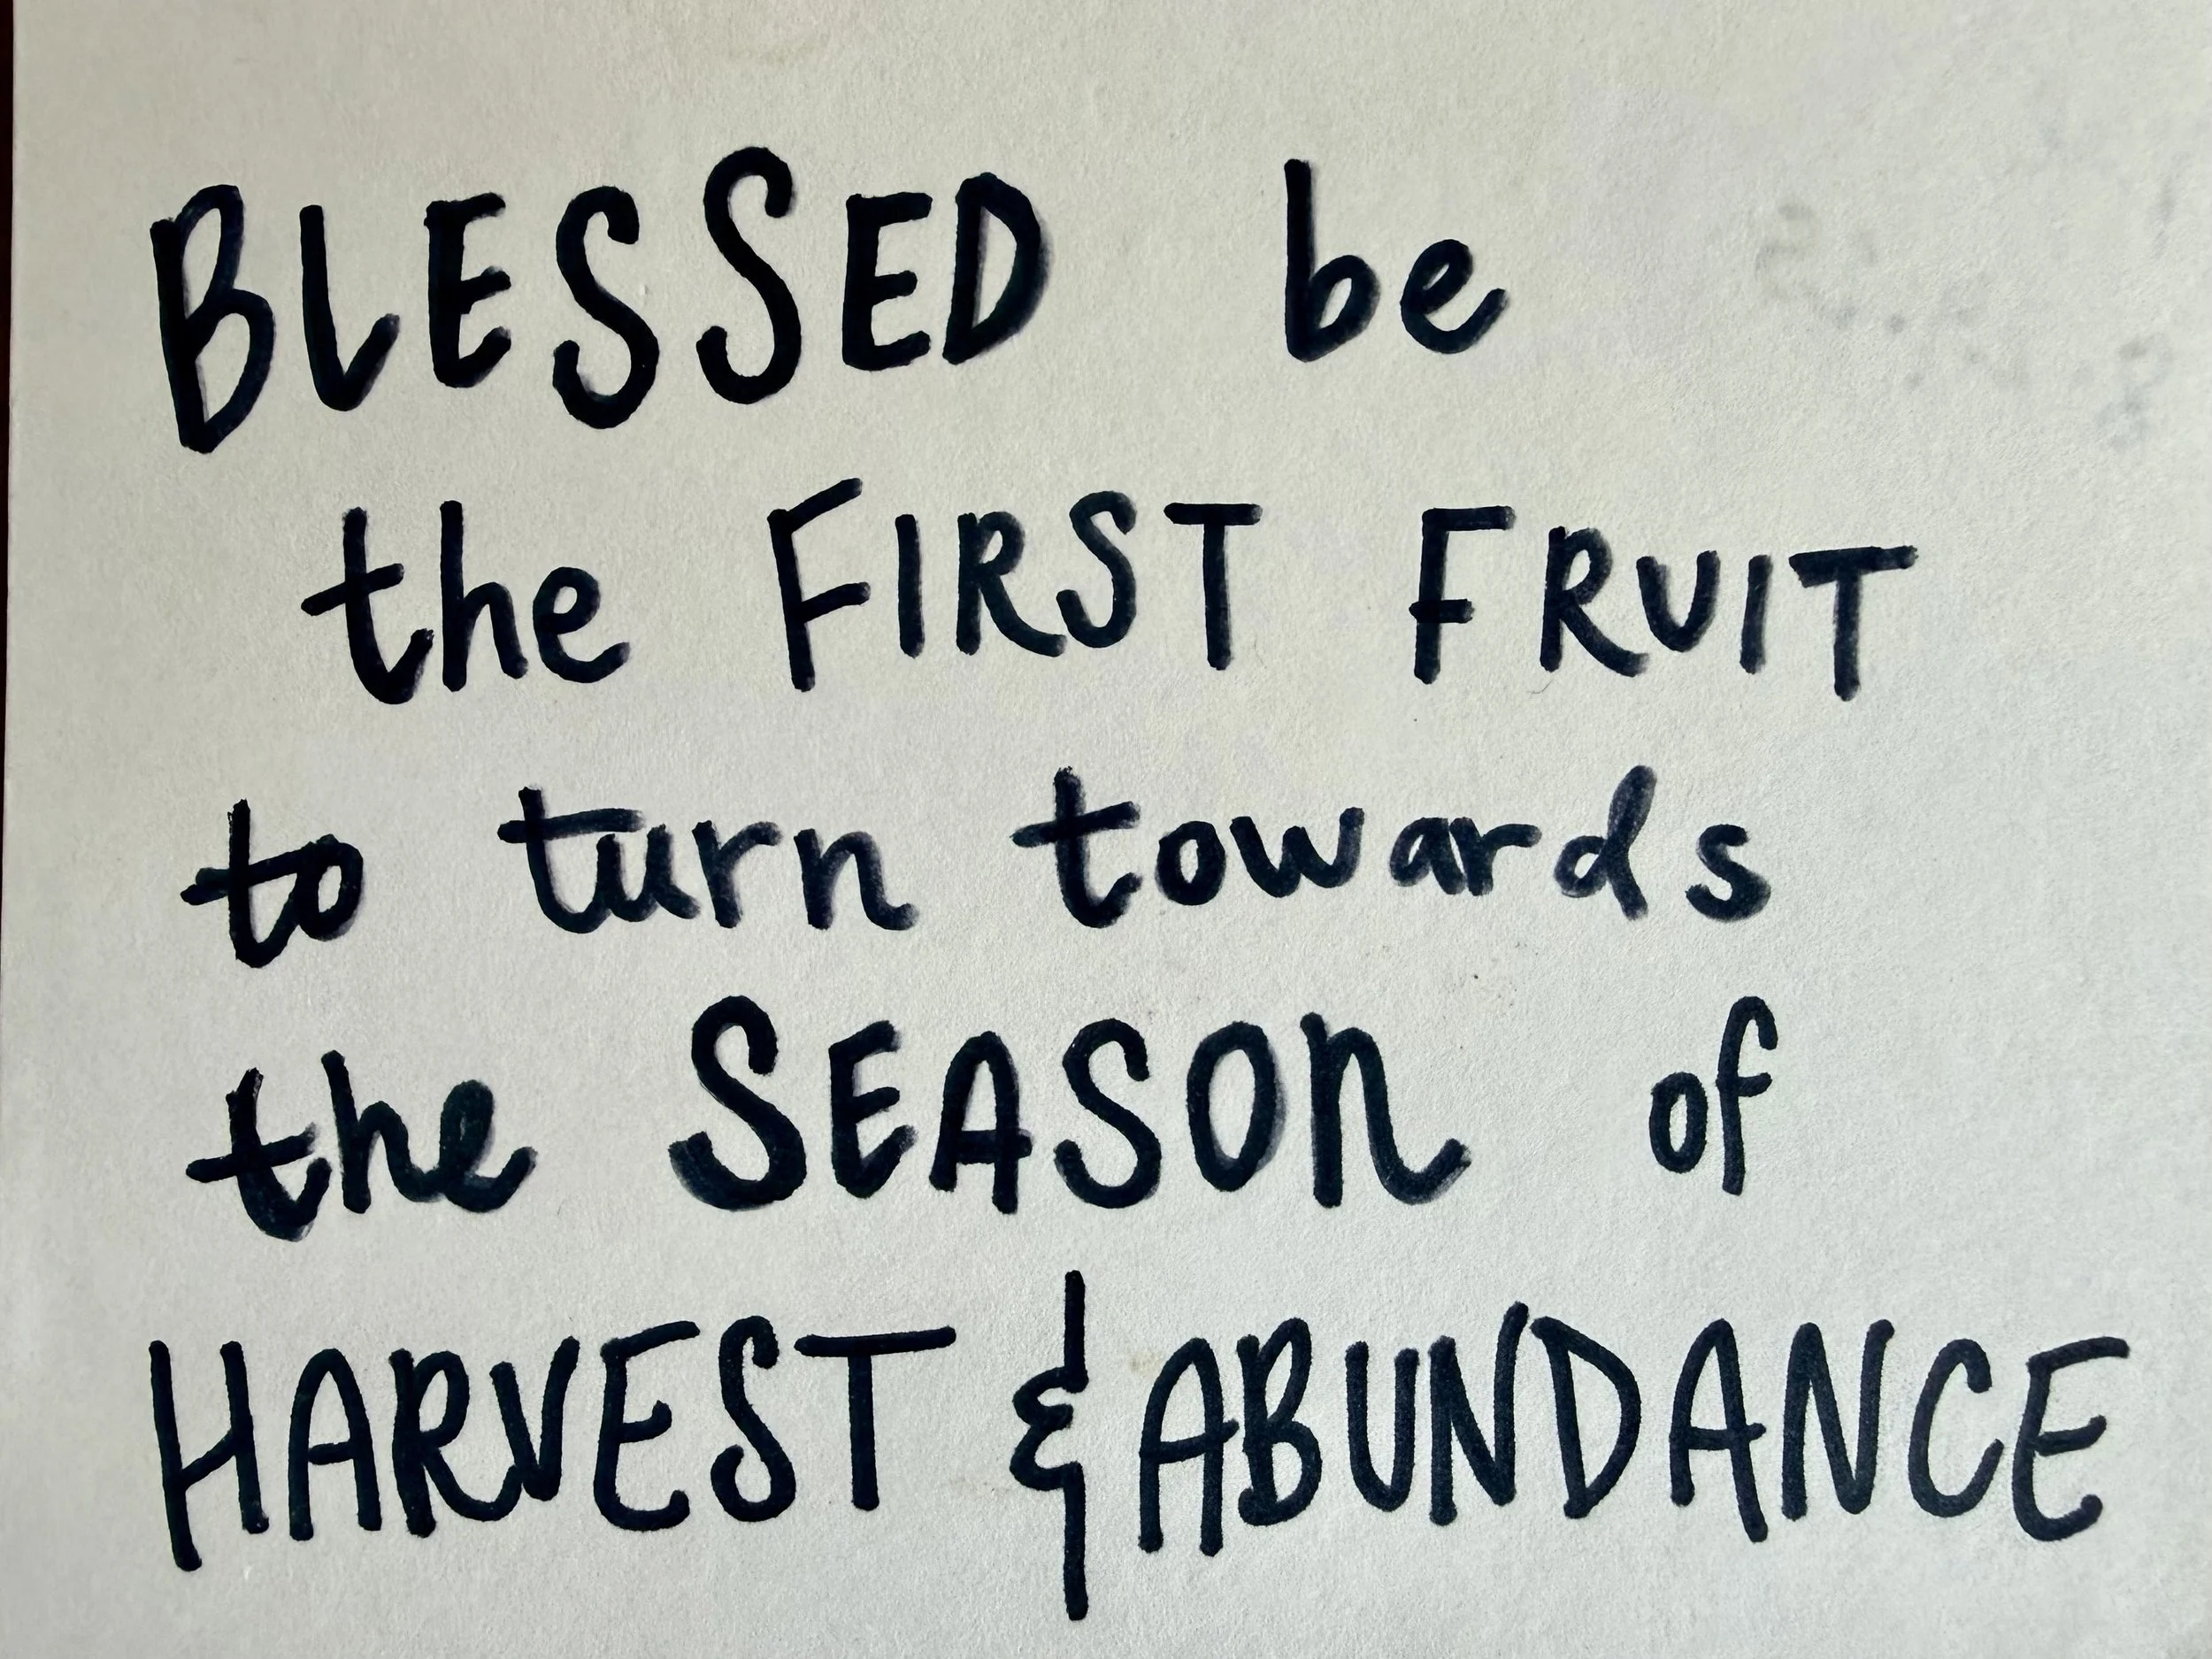 BLESSED be
the FIRST FRUIT
to turn towards
the SEASON of
HARVEST & ABUNDANCE